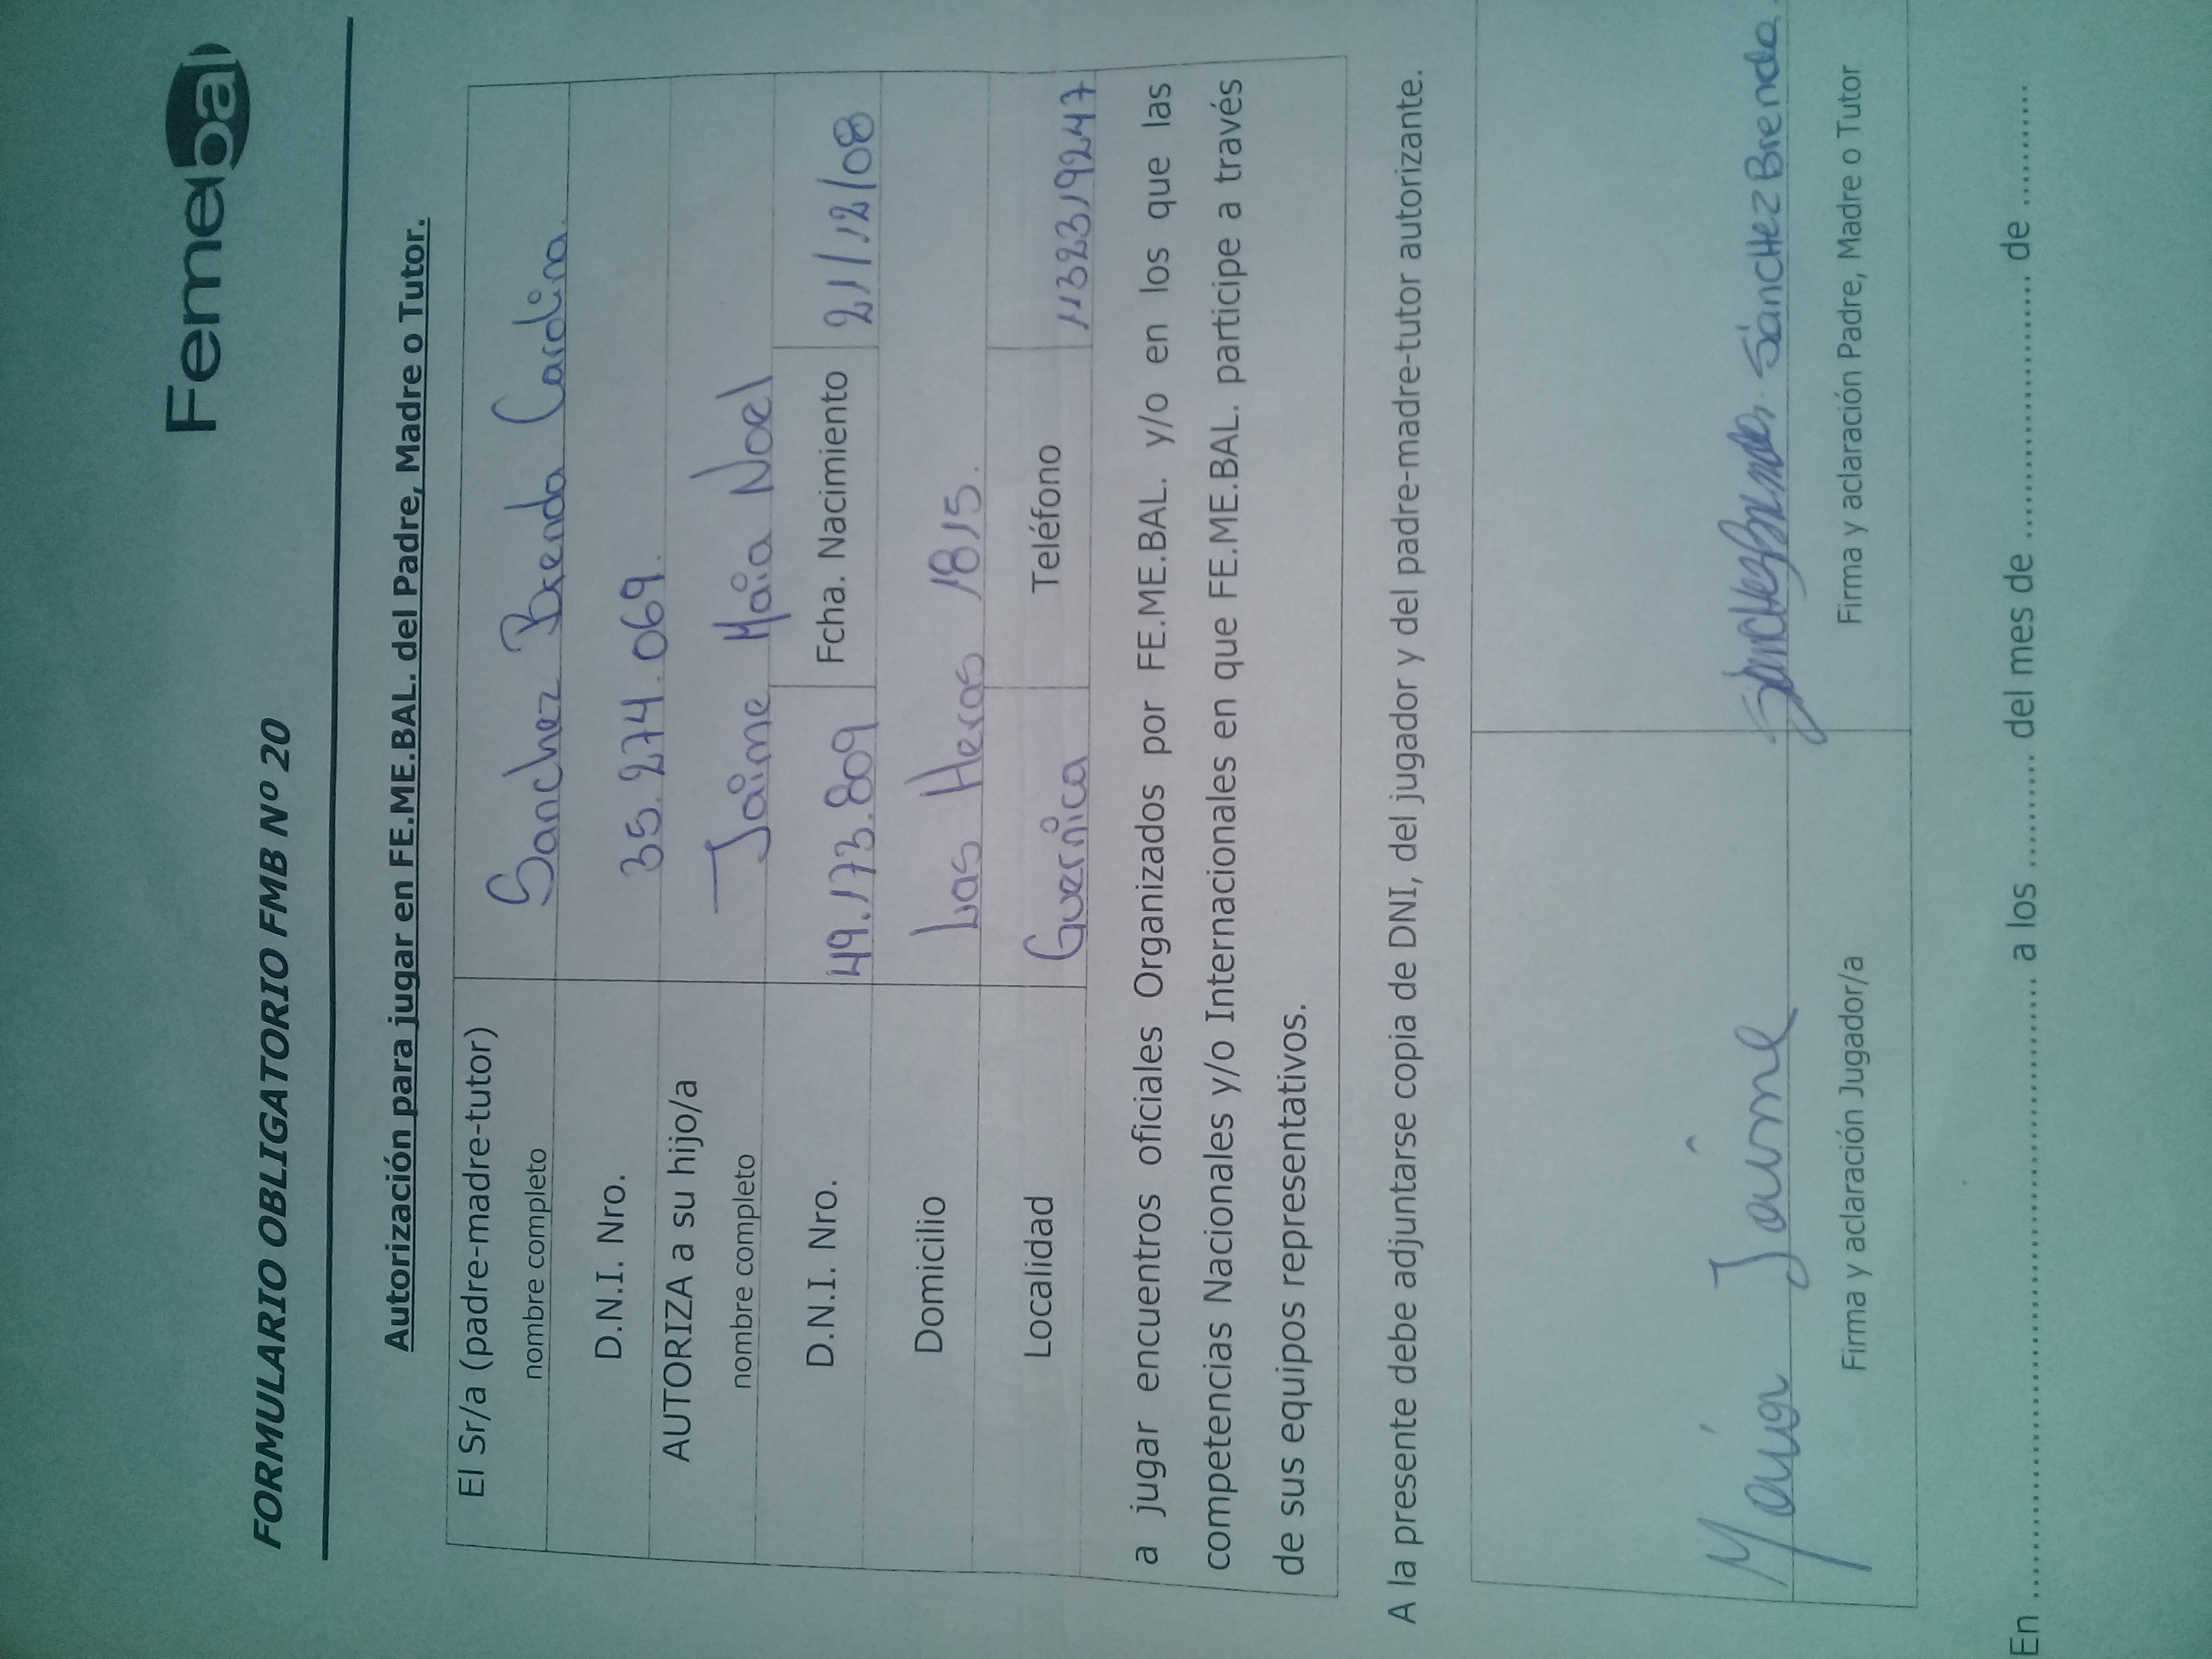 Femebal
FORMULARIO OBLIGATORIO FMB Nº 20
Autorización para jugar en FE.ME.BAL. del Padre, Madre o Tutor.
El Sr/a (padre-madre-tutor) nombre completo Sanchez Brenda Carolina.
D.N.I. Nro. 35.274.069.
AUTORIZA a su hijo/a nombre completo Jaime Maia Noel
D.N.I. Nro. 49.173.809 Fcha. Nacimiento 21/12/08
Domicilio Las Heras 1815.
Localidad Guernica Teléfono 1132319247
a jugar encuentros oficiales Organizados por FE.ME.BAL. y/o en los que las
competencias Nacionales y/o Internacionales en que FE.ME.BAL. participe a través
de sus equipos representativos.
A la presente debe adjuntarse copia de DNI, del jugador y del padre-madre-tutor autorizante.
Maia Jaime SáncHezBrenda. SáncHezBrenda.
Firma y aclaración Jugador/a Firma y aclaración Padre, Madre o Tutor
En ........................................ a los ......... del mes de ........................ de ..........